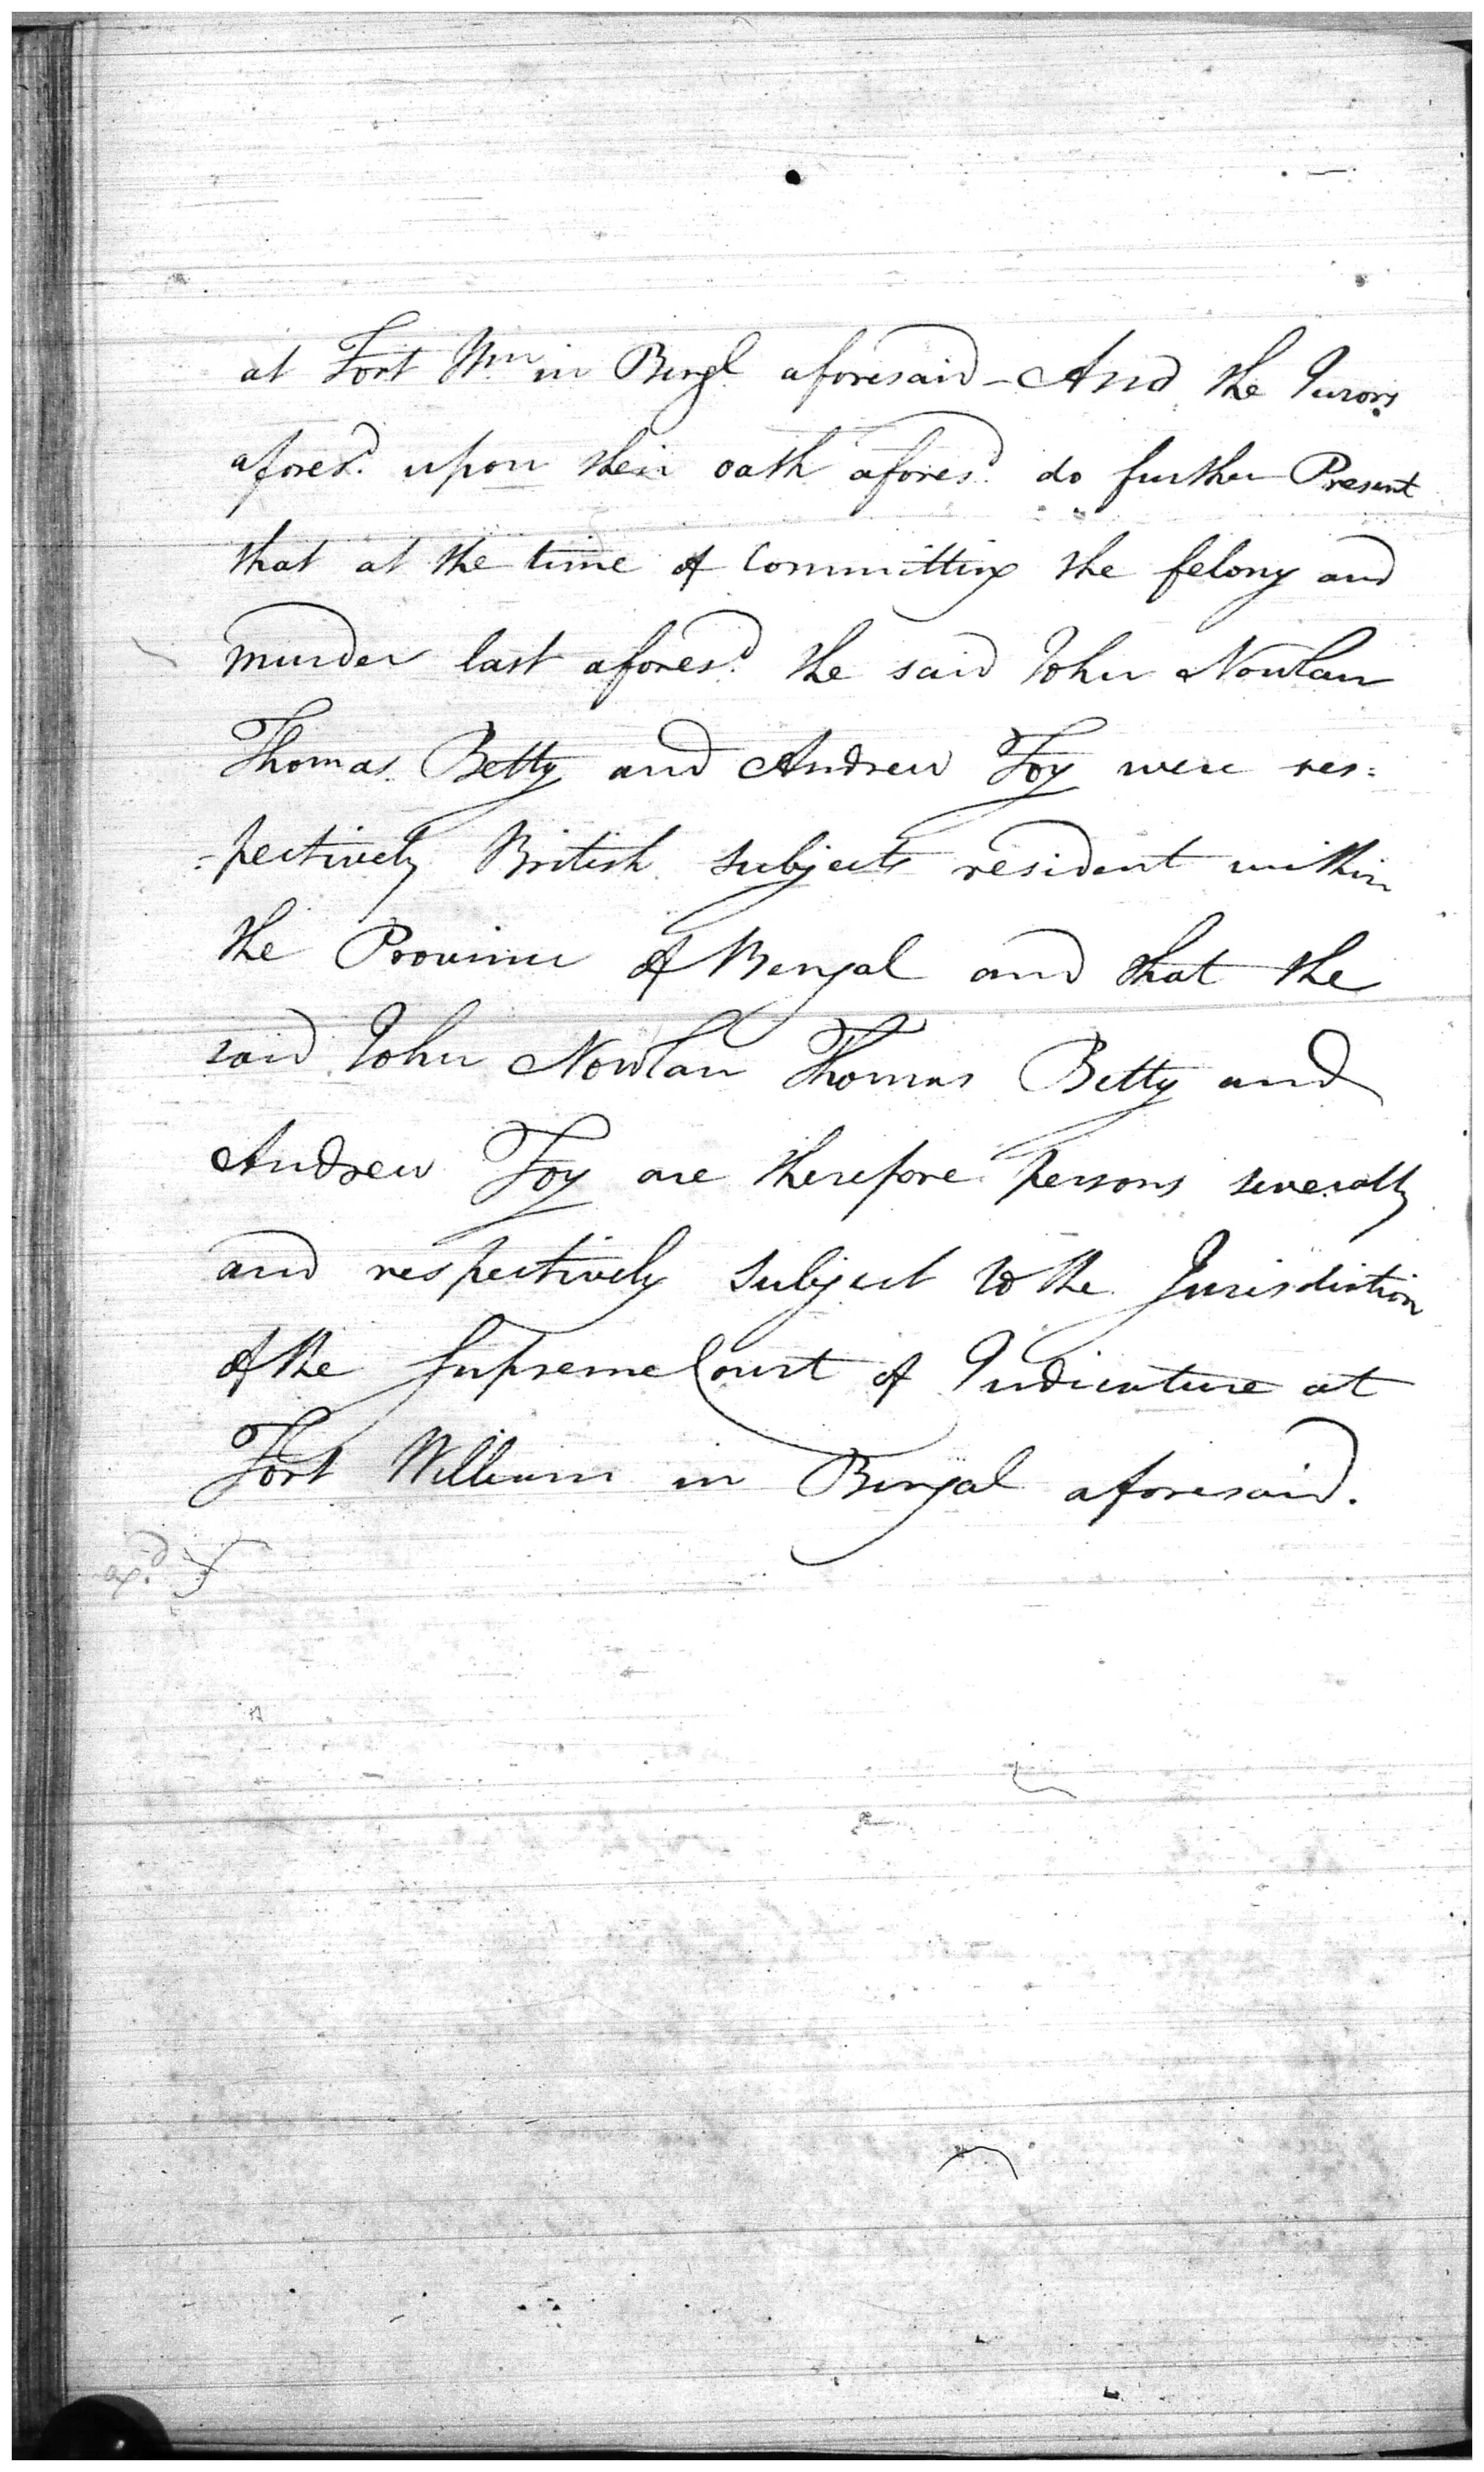 at Fort Wm in Bengl aforesaid - And the Jurors
afores.d upon their oath afores.d do further Present
that at the time of Committing the felony and
murder last afores.d the said John Nowlan
Thomas Betty and Andrew Foy were res=
=pectively British subjects resident within
the Province of Bengal and that the
said John Nowlan Thomas Betty and
Andrew Foy are therefore persons severally
and respectively subject to the Jurisdiction
of the Supreme Court of Judicature at
Fort William in Bengal aforesaid.